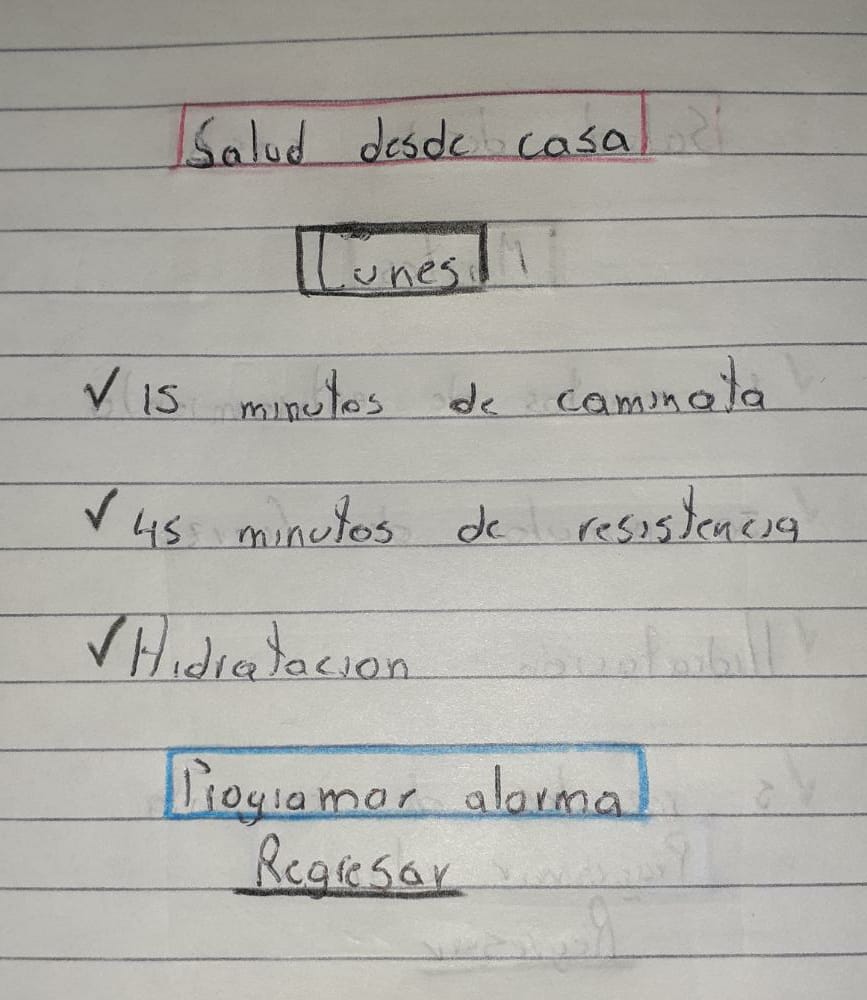 Salud desde casa
Lunes
✓ 15 minutos de caminata
✓ 45 minutos de resistencia
✓ Hidratacion
Programar alarma
Regresar